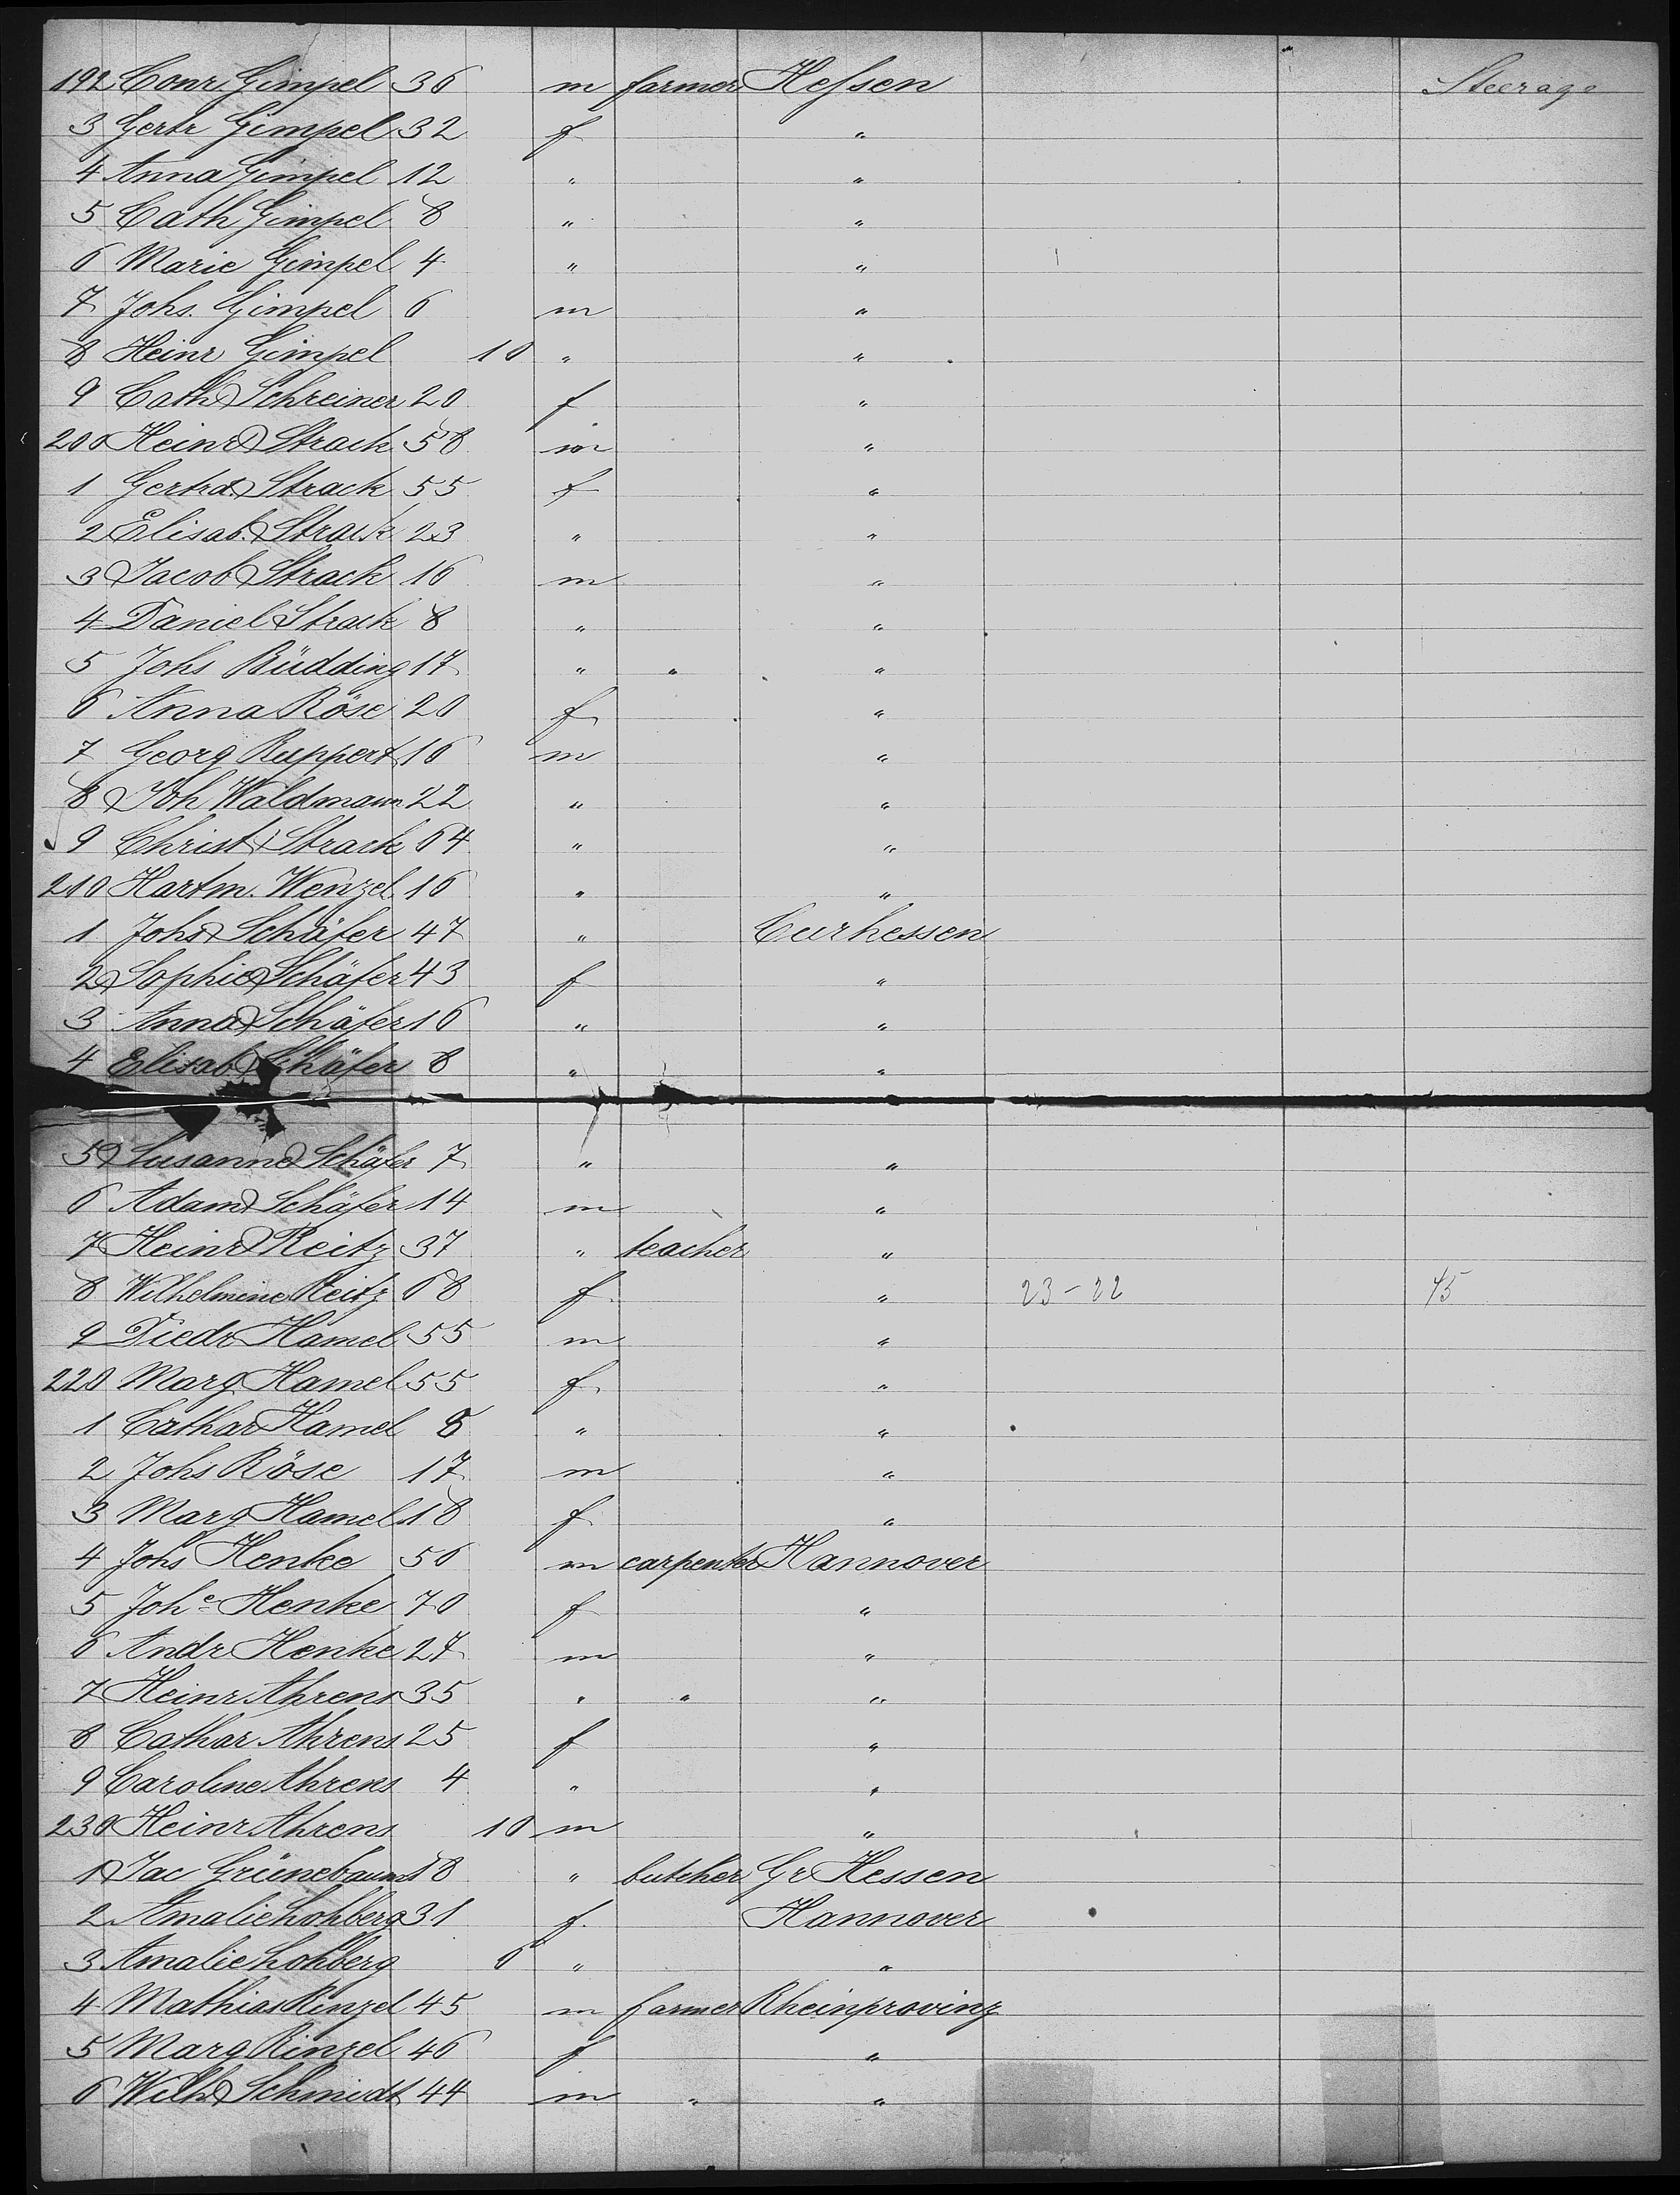 192 Conr. Gimpel 36 m farmer Hessen Steerage
3 Gertr Gimpel 32 f "
4 Anna Gimpel 12 " "
5 Cath Gimpel 8 " "
6 Marie Gimpel 4 " "
7 Johs. Gimpel 6 m "
8 Heinr Gimpel 10 " "
9 Cath Schreiner 20 f "
200 Heinr Strack 58 m "
1 Gertrd Strack 55 f "
2 Elisab. Strack 23 " "
3 Jacob Strack 16 m "
4 Daniel Strack 8 " "
5 Johs Büdding 17 " " "
6 Anna Röse 20 f "
7 Georg Ruppert 16 m "
8 Joh Waldmann 22 " "
9 Christ Strack 64 " "
210 Hartm. Wenzel 16 " "
1 Johs Schäfer 47 " Curhessen
2 Sophie Schäfer 43 f "
3 Anna Schäfer 16 " "
4 Elisab Schäfer 8 " "
5 Susanne Schäfer 7 " "
6 Adam Schäfer 14 m "
7 Heinr Reitz 37 " teacher "
8 Wilhelmine Reitz 68 f " 23-22 45
9 Diedr Hamel 55 m "
220 Marg Hamel 55 f "
1 Cathar Hamel 8 " "
2 Johs Röse 17 m "
3 Marg Hamel 18 f "
4 Johs Henke 56 m carpenter Hannover
5 Joh<sup>e</sup> Henke 70 f "
6 Andr Henke 27 m "
7 Heinr Ahrens 35 " " "
8 Cathar Ahrens 25 f "
9 Caroline Ahrens 4 " "
230 Heinr Ahrens 10 m "
1 Jac Grünebaum 18 " butcher Gr Hessen
2 Amalie Lohberg 31 f. Hannover
3 Amalie Lohberg 6 " "
4 Mathias Rinzel 45 m farmer Rheinprovinz
5 Marg Rinzel 46 f "
6 Wilh Schmidt 44 m " "